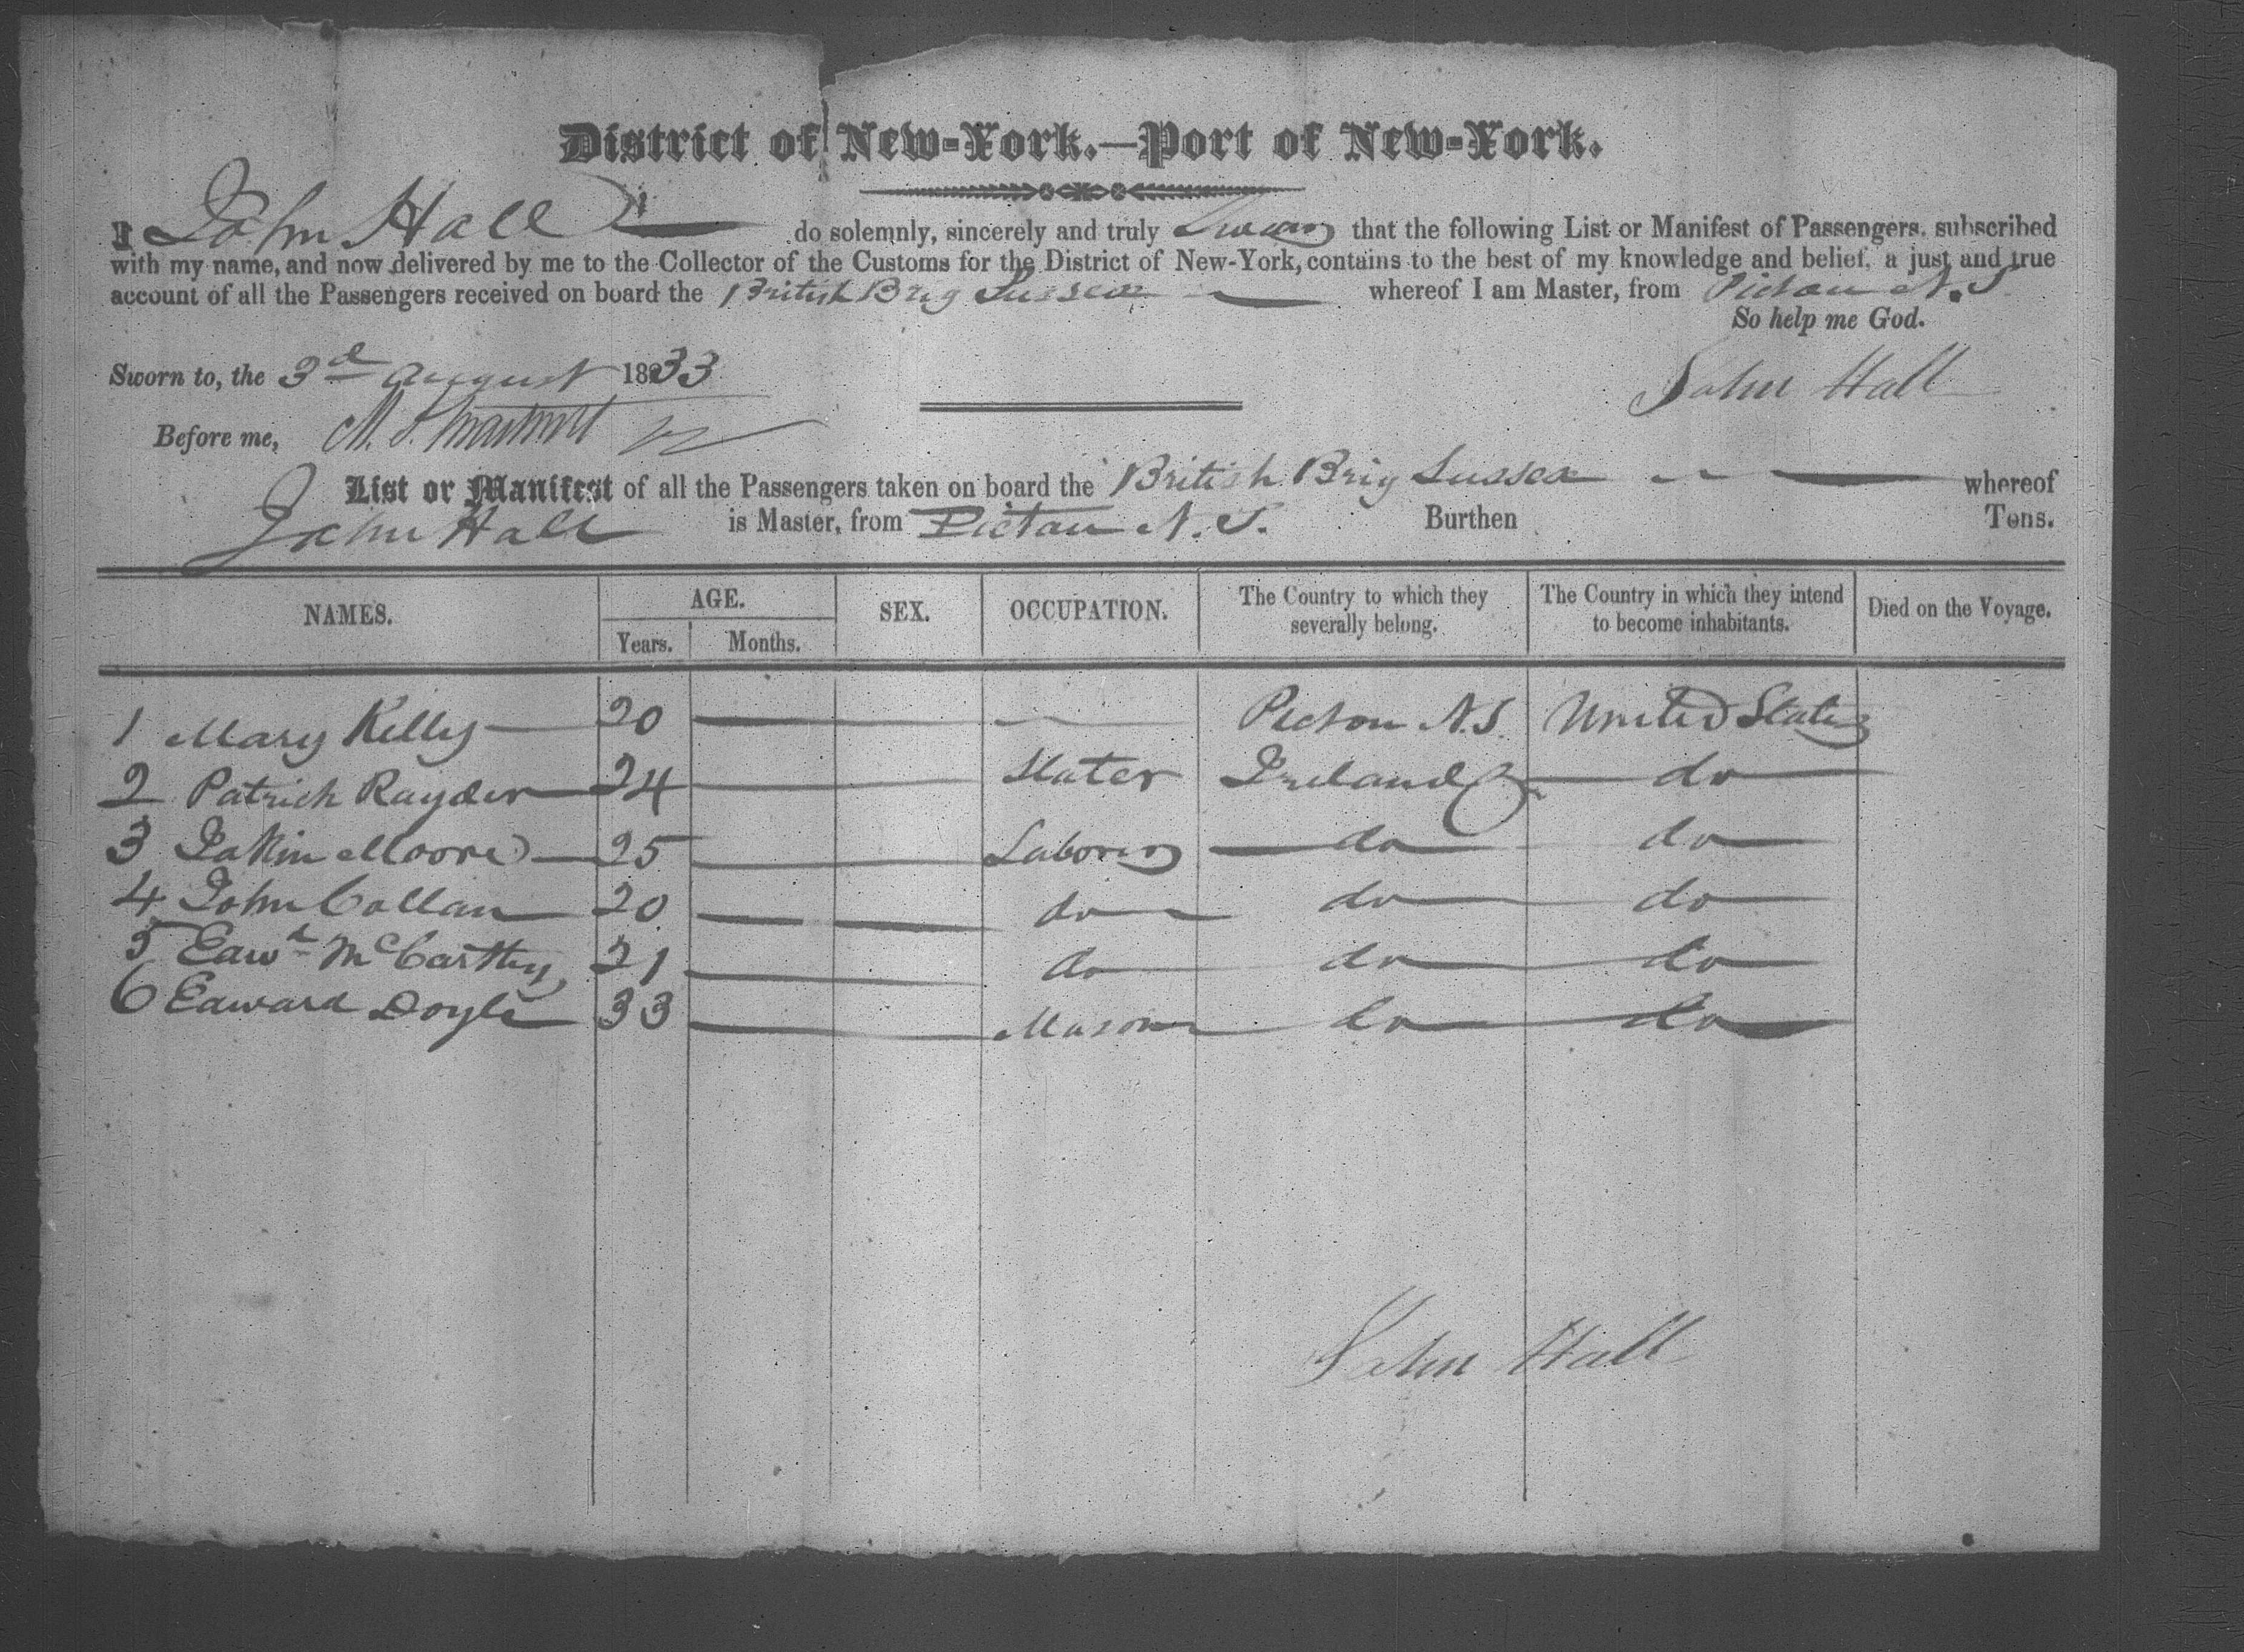 District of New-York.—Port of New-York.
I John Hall do solemnly, sincerely and truly Swear that the following List or Manifest of Passengers, subscribed
with my name, and now delivered by me to the Collector of the Customs for the District of New-York, contains to the best of my knowledge and belief, a just and true
account of all the Passengers received on board the British Brig Sussex whereof I am Master, from Pictou N.S
So help me God.
Sworn to, the 3d August 1833 John Hall
Before me, M. S.
List or Manifest of all the Passengers taken on board the British Brig Sussex whereof
John Hall is Master, from Pictou N.S. Burthen Tons.
NAMES. AGE. Years. Months. SEX. OCCUPATION. The Country to which they severally belong. The Country in which they intend to become inhabitants. Died on the Voyage.
1 Mary Kelly 20 Picton N.S. United States
2 Patrick Rayder 24 Slater Ireland do
3 Moore 25 Laborer do do
4 John Collan 20 do do do
5 Edwd McCarthy 21 do do do
6 Edward Doyle 33 Mason do do
John Hall